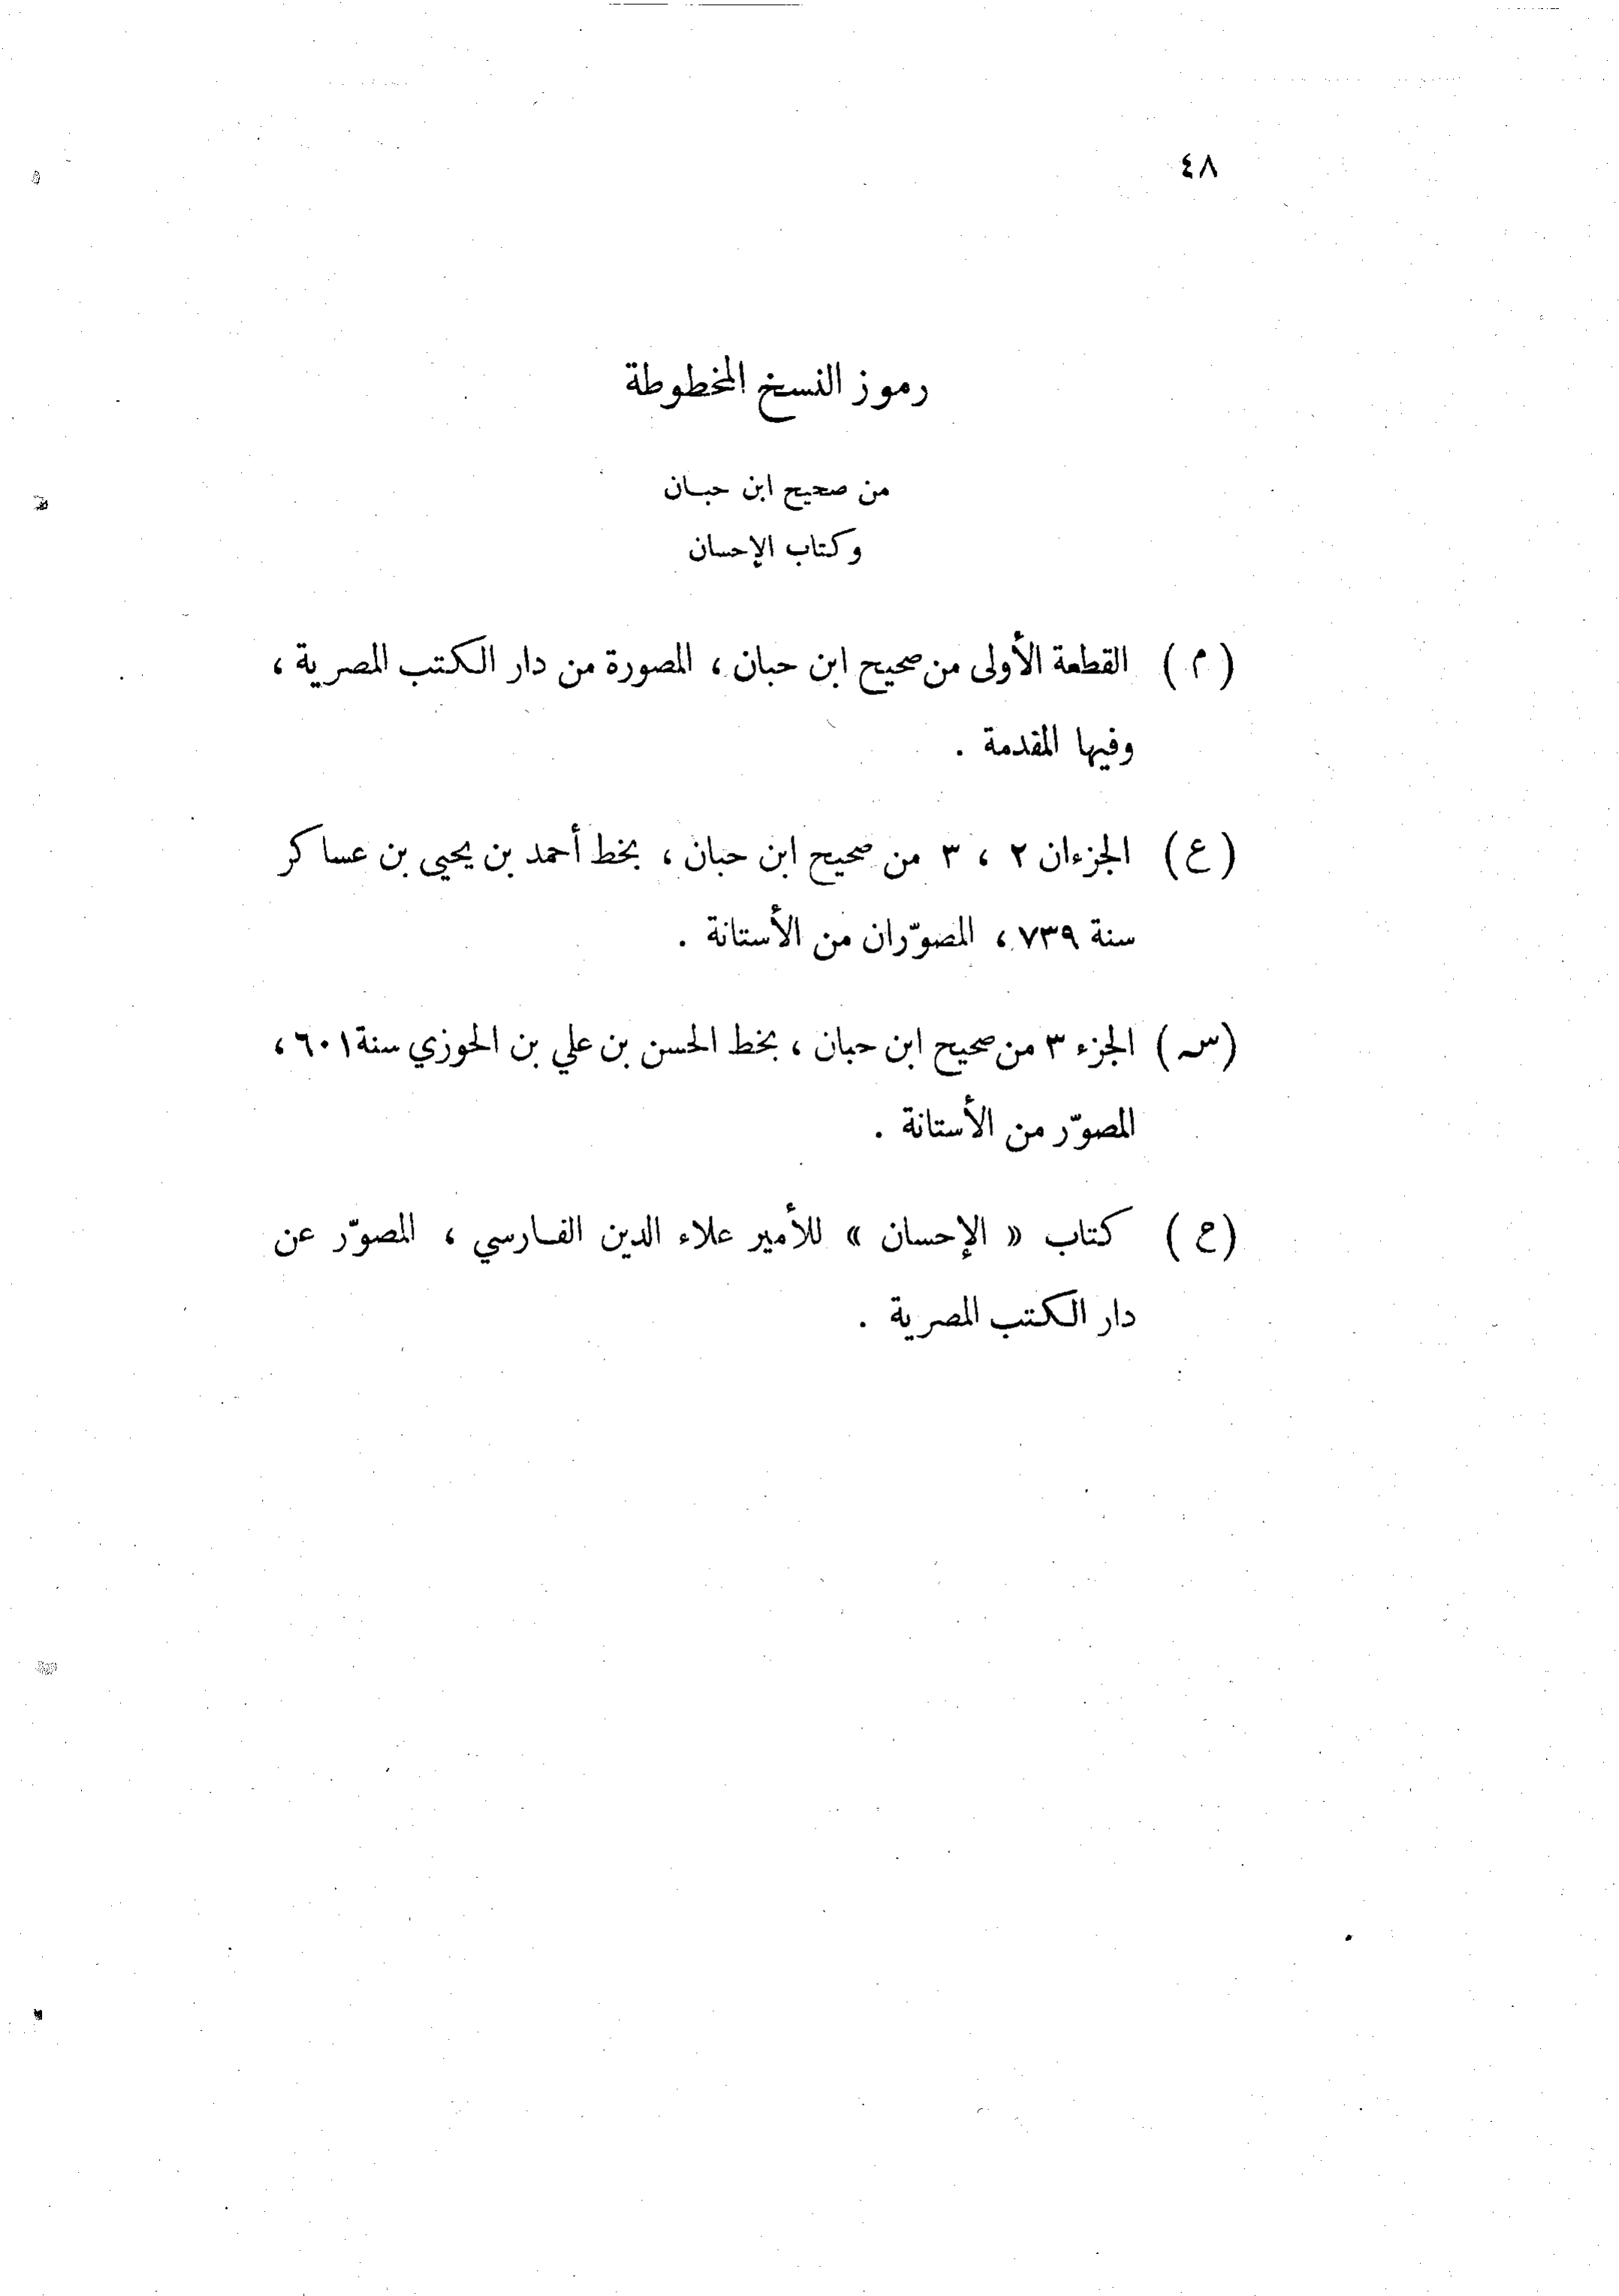 ٤٨
رموز النسخ المخطوطة
من صحيح ابن حبان
وكتاب الإحسان
(م) القطعة الأولى من صحيح ابن حبان ، المصورة من دار الكتب المصرية ،
وفيها المقدمة .
(ع) الجزءان ٢ ، ٣ من صحيح ابن حبان ، بخط أحمد بن يحيى بن عساكر
سنة ٧٣٩ ، المصوّران من الأستانة .
(س) الجزء ٣ من صحيح ابن حبان ، بخط الحسن بن علي بن الحوزي سنة ٦٠١ ،
المصوّر من الأستانة .
(ح) كتاب « الإحسان » للأمير علاء الدين الفارسي ، المصوّر عن
دار الكتب المصرية .